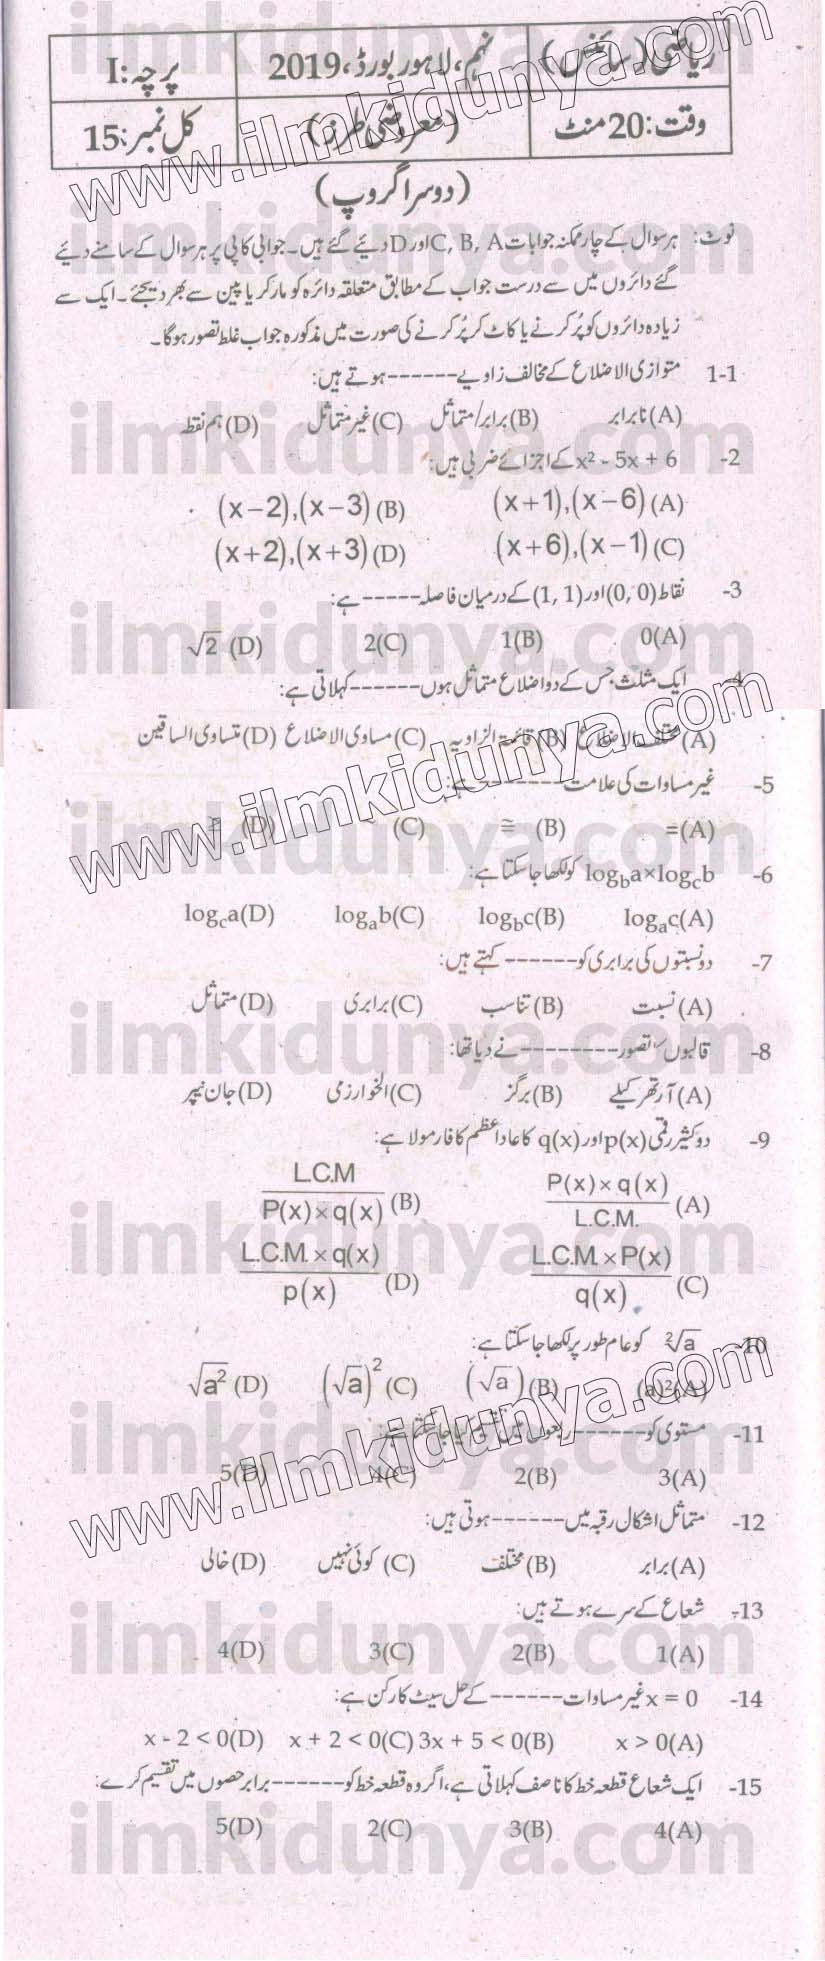 ریاضی (سائنس) نہم، لاہور بورڈ، 2019 پرچہ: I
وقت: 20 منٹ (معروضی طرز) کل نمبر: 15
(دوسرا گروپ)
نوٹ: ہر سوال کے چار ممکنہ جوابات C, B, A اور D دیئے گئے ہیں۔ جوابی کاپی پر ہر سوال کے سامنے دیئے
گئے دائروں میں سے درست جواب کے مطابق متعلقہ دائرہ کو مارکر یا پین سے بھر دیجئے۔ ایک سے
زیادہ دائروں کو پُر کرنے یا کاٹ کر پُر کرنے کی صورت میں مذکورہ جواب غلط تصور ہوگا۔
1-1 متوازی الاضلاع کے مخالف زاویے ------ ہوتے ہیں:
(A) نابرابر (B) برابر/متماثل (C) غیر متماثل (D) ہم نقط
-2 x² - 5x + 6 کے اجزائے ضربی ہیں:
(A) (x+1),(x−6) (B) (x−2),(x−3)
(C) (x+6),(x−1) (D) (x+2),(x+3)
-3 نقاط (0, 0) اور (1, 1) کے درمیان فاصلہ ----- ہے:
0(A) 1(B) 2(C) √2 (D)
-4 ایک مثلث جس کے دو اضلاع متماثل ہوں ------ کہلاتی ہے:
(A) مختلف الاضلاع (B) قائمۃ الزاویہ (C) مساوی الاضلاع (D) متساوی الساقین
-5 غیر مساوات کی علامت ------ ہے:
=(A) ≅ (B) (C) (D)
-6 log_b a×log_c b کو لکھا جا سکتا ہے:
log_a c(A) log_b c(B) log_a b(C) log_c a(D)
-7 دو نسبتوں کی برابری کو ------ کہتے ہیں:
(A) نسبت (B) تناسب (C) برابری (D) متماثل
-8 قالبوں کا تصور -------- نے دیا تھا:
(A) آرتھر کیلے (B) برگز (C) الخوارزمی (D) جان نیپر
-9 دو کثیر رقمی p(x) اور q(x) کا عاد اعظم کا فارمولا ہے:
(A) P(x)×q(x) / L.C.M. (B) L.C.M / P(x)×q(x)
(C) L.C.M.×P(x) / q(x) (D) L.C.M.×q(x) / p(x)
-10 ²√a کو عام طور پر لکھا جا سکتا ہے:
(a)²(A) (√a) (B) (√a)² (C) √a² (D)
-11 مستوی کو ------ ربعوں میں تقسیم کیا جا سکتا ہے:
3(A) 2(B) 4(C) 5(D)
-12 متماثل اشکال رقبہ میں ------ ہوتی ہیں:
(A) برابر (B) مختلف (C) کوئی نہیں (D) خالی
-13 شعاع کے سرے ہوتے ہیں:
1(A) 2(B) 3(C) 4(D)
-14 x = 0 غیر مساوات ------ کے حل سیٹ کا رکن ہے:
x > 0(A) 3x + 5 < 0(B) x + 2 < 0(C) x - 2 < 0(D)
-15 ایک شعاع قطعہ خط کا ناصف کہلاتی ہے، اگر وہ قطعہ خط کو ------ برابر حصوں میں تقسیم کرے:
4(A) 3(B) 2(C) 5(D)
www.ilmkidunya.com
ilmkidunya.com